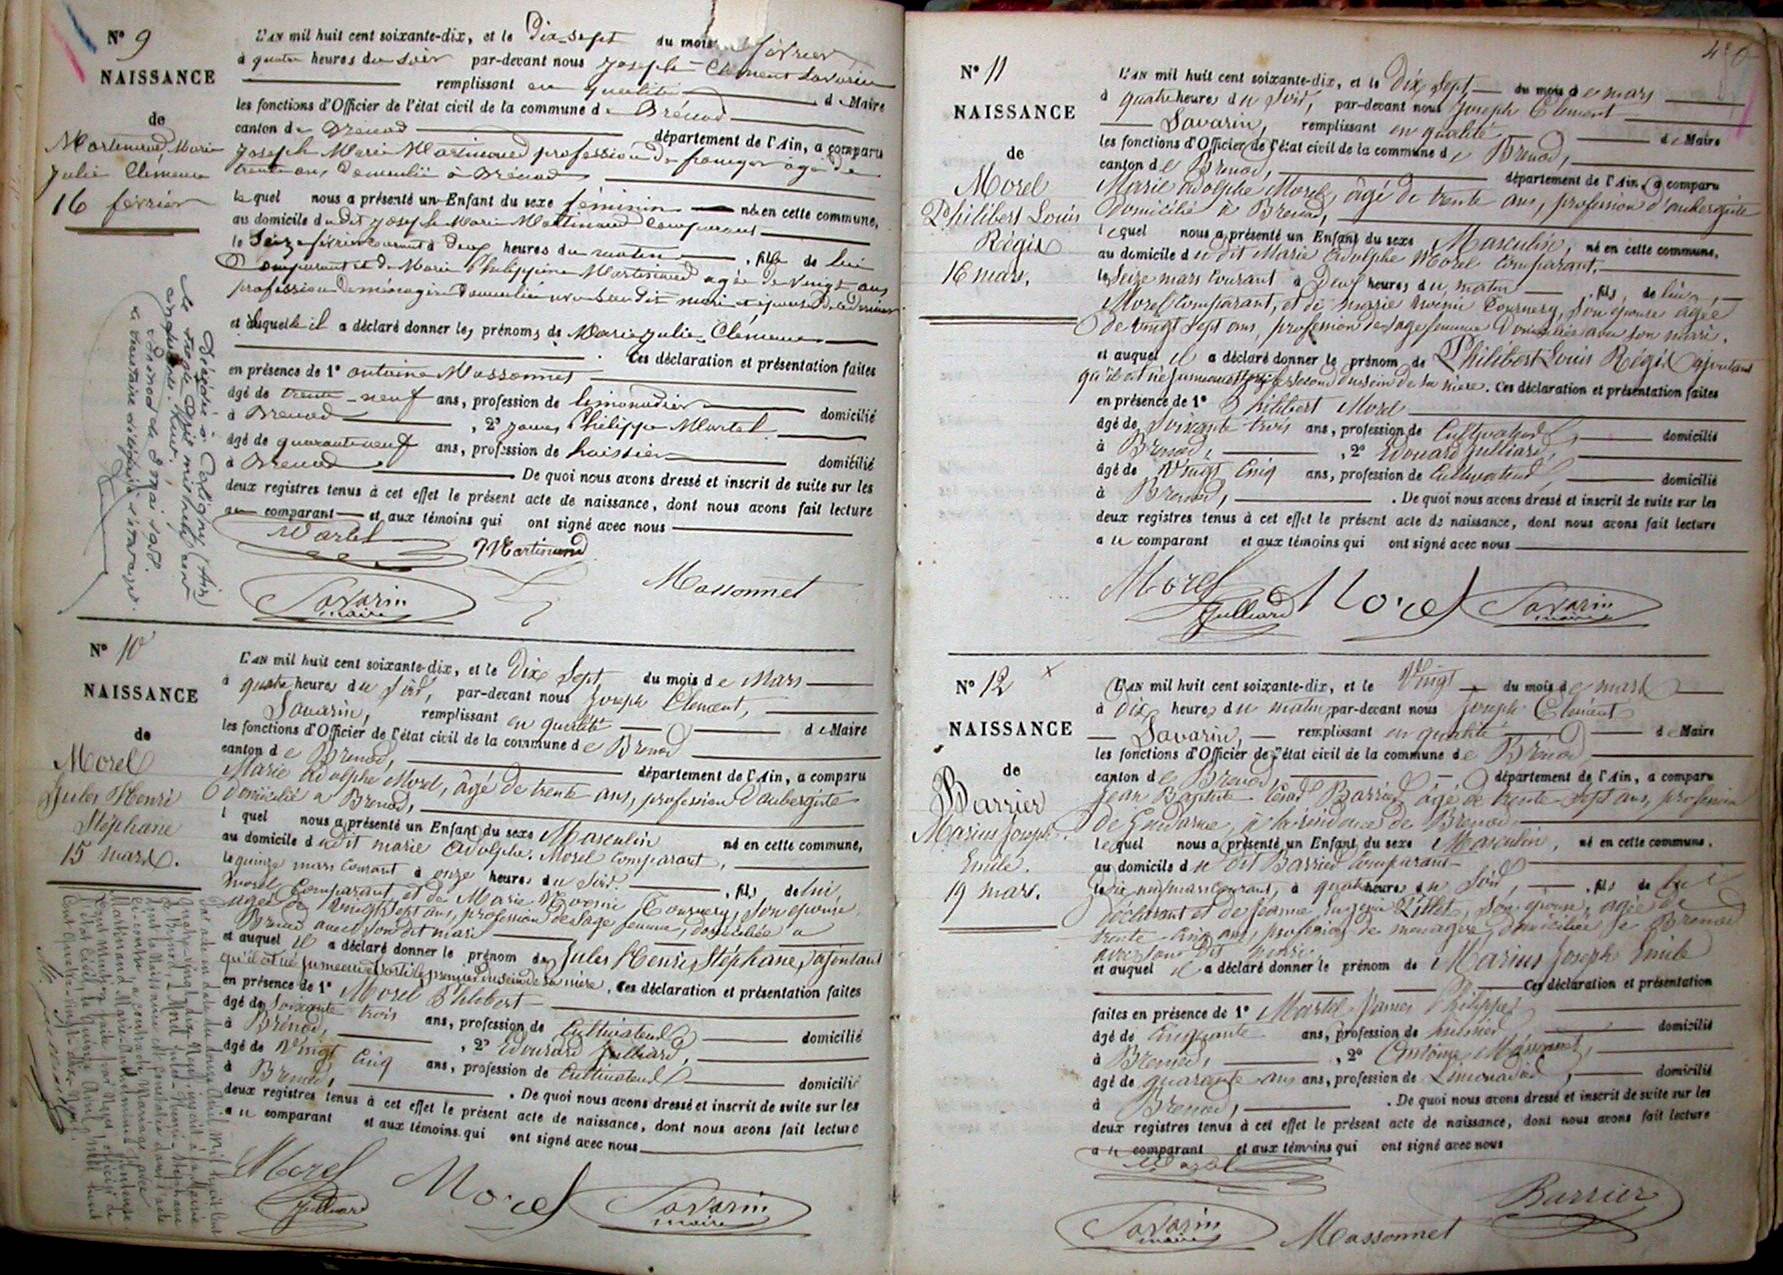 N° 9
NAISSANCE
de
Martinand Marie
Julie Clémence
16 février
L'AN mil huit cent soixante-dix, et le Dix-sept du mois février
à quatre heures du soir par-devant nous Joseph-Clément Savarin
remplissant en qualité de Maire
les fonctions d'Officier de l'état civil de la commune de Brénod
canton de Brénod département de l'Ain, a comparu
Joseph Marie Martinand profession de âgé de
trente ans, domicilié à Brénod
lequel nous a présenté un Enfant du sexe féminin né en cette commune,
au domicile du dit Joseph Marie Martinand comparant
le Seize février courant à deux heures du matin, fille de lui
Comparant et de Marie Philippine Martinand agée de vingt ans
profession de ménagère domiciliée avec son dit mari
et à laquelle il a déclaré donner les prénoms de Marie Julie Clémence
Ces déclaration et présentation faites
en présence de 1° Antoine Massonnet
âgé de trente-neuf ans, profession de limonadier domicilié
à Brenod, 2° James Philippe Martel
âgé de quarante neuf ans, profession de huissier domicilié
à Brenod De quoi nous avons dressé et inscrit de suite sur les
deux registres tenus à cet effet le présent acte de naissance, dont nous avons fait lecture
au comparant et aux témoins qui ont signé avec nous
Martel
Martinand
Savarin
maire
Massonnet
Décédée à (Ain)
le trois Avril mil huit cent
Brénod le 8 mai 1958.
N° 10
NAISSANCE
de
Morel
Jules Henri
Stéphane
15 mars.
L'AN mil huit cent soixante-dix, et le Dix Sept du mois de Mars
à quatre heures du Soir, par-devant nous Joseph Clément,
Savarin, remplissant en qualité de Maire
les fonctions d'Officier de l'état civil de la commune de Brenod
canton de Brenod, département de l'Ain, a comparu
Marie Adolphe Morel, âgé de trente ans, profession d'aubergiste
Domicilié à Brenod,
lequel nous a présenté un Enfant du sexe Masculin né en cette commune,
au domicile du dit Marie Adolphe Morel comparant,
le quinze mars courant à onze heures du Soir, fils de lui
Morel Comparant et de Marie Noemie Tournery, Son épouse
agée de Vingt Sept ans, profession de Sage femme, domiciliée à
Brenod avec Son dit mari
et auquel il a déclaré donner le prénom de Jules Henri Stéphane, ajoutant
qu'il est né jumeau et sorti le premier du sein de sa mère. Ces déclaration et présentation faites
en présence de 1° Morel Philibert
âgé de Soixante trois ans, profession de Cultivateur domicilié
à Brénod, 2° Edouard Julliard,
âgé de Vingt Cinq ans, profession de Cultivateur domicilié
à Brenod, . De quoi nous avons dressé et inscrit de suite sur les
deux registres tenus à cet effet le présent acte de naissance, dont nous avons fait lecture
au comparant et aux témoins qui ont signé avec nous
Morel
Julliard
Morel
Savarin
maire
Par acte en date du douze Avril mil huit cent
quatre-vingt-dix Neuf, inscrit à la Mairie
de Brénod, Morel Jules-Henri-Stéphane
dont la Naissance est constatée dans l'acte
ci-contre, a contracté Mariage avec
Martinand Marie
Dont Mention faite par Nous, officier de
l'Etat Civil, le quinze Avril mil huit
Cent quatre-vingt-dix-Neuf.
480
N° 11
NAISSANCE
de
Morel
Philibert Louis
Régis
16 mars.
L'AN mil huit cent soixante-dix, et le Dix Sept du mois de mars
à quatre heures du Soir, par-devant nous Joseph Clément
Savarin, remplissant en qualité de Maire
les fonctions d'Officier de l'état civil de la commune de Brenod,
canton de Brenod, département de l'Ain, a comparu
Marie Adolphe Morel, âgé de trente ans, profession d'aubergiste
Domicilié à Brenod,
lequel nous a présenté un Enfant du sexe Masculin, né en cette commune,
au domicile du dit Marie Adolphe Morel comparant,
le Seize mars Courant à Deux heures du matin, fils, de lui,
Morel Comparant, et de Marie Noemie Tournery, Son épouse agée
de vingt Sept ans, profession de Sage femme Domiciliée avec son mari.
et auquel il a déclaré donner le prénom de Philibert Louis Régis ajoutant
qu'il est né jumeau et sorti le second du sein de sa mère. Ces déclaration et présentation faites
en présence de 1° Philibert Morel
âgé de Soixante trois ans, profession de Cultivateur, domicilié
à Brenod, 2° Edouard Julliard,
âgé de Vingt Cinq ans, profession de Cultivateur, domicilié
à Brenod, . De quoi nous avons dressé et inscrit de suite sur les
deux registres tenus à cet effet le présent acte de naissance, dont nous avons fait lecture
au comparant et aux témoins qui ont signé avec nous
Morel
Julliard
Morel
Savarin
maire
N° 12 x
NAISSANCE
de
Barrier
Marius Joseph
Emile.
19 mars.
L'AN mil huit cent soixante-dix, et le Vingt du mois de mars
à Dix heures du matin, par-devant nous Joseph Clément
Savarin, remplissant en qualité de Maire
les fonctions d'Officier de l'état civil de la commune de Brénod
canton de Brenod, département de l'Ain, a comparu
Jean Baptiste Barrier âgé de trente-sept ans, profession
de Gendarme, à la résidence de Brenod
lequel nous a présenté un Enfant du sexe Masculin, né en cette commune,
au domicile du dit Barrier Comparant
le dix neuf mars courant, à quatre heures du Soir, fils de lui
déclarant et de Jeanne Son épouse, agée de
trente-cinq ans, profession de menagère, domiciliée à Brenod
avec Son Dit mari
et auquel il a déclaré donner le prénom de Marius Joseph Emile
Ces déclaration et présentation
faites en présence de 1° Martel James Philippe
âgé de Cinquante ans, profession de huissier domicilié
à Brenod, 2° Antoine Massonnet,
âgé de quarante ans ans, profession de Limonadier, domicilié
à Brenod, . De quoi nous avons dressé et inscrit de suite sur les
deux registres tenus à cet effet le présent acte de naissance, dont nous avons fait lecture
au comparant et aux témoins qui ont signé avec nous
Martel
Barrier
Savarin
maire
Massonnet